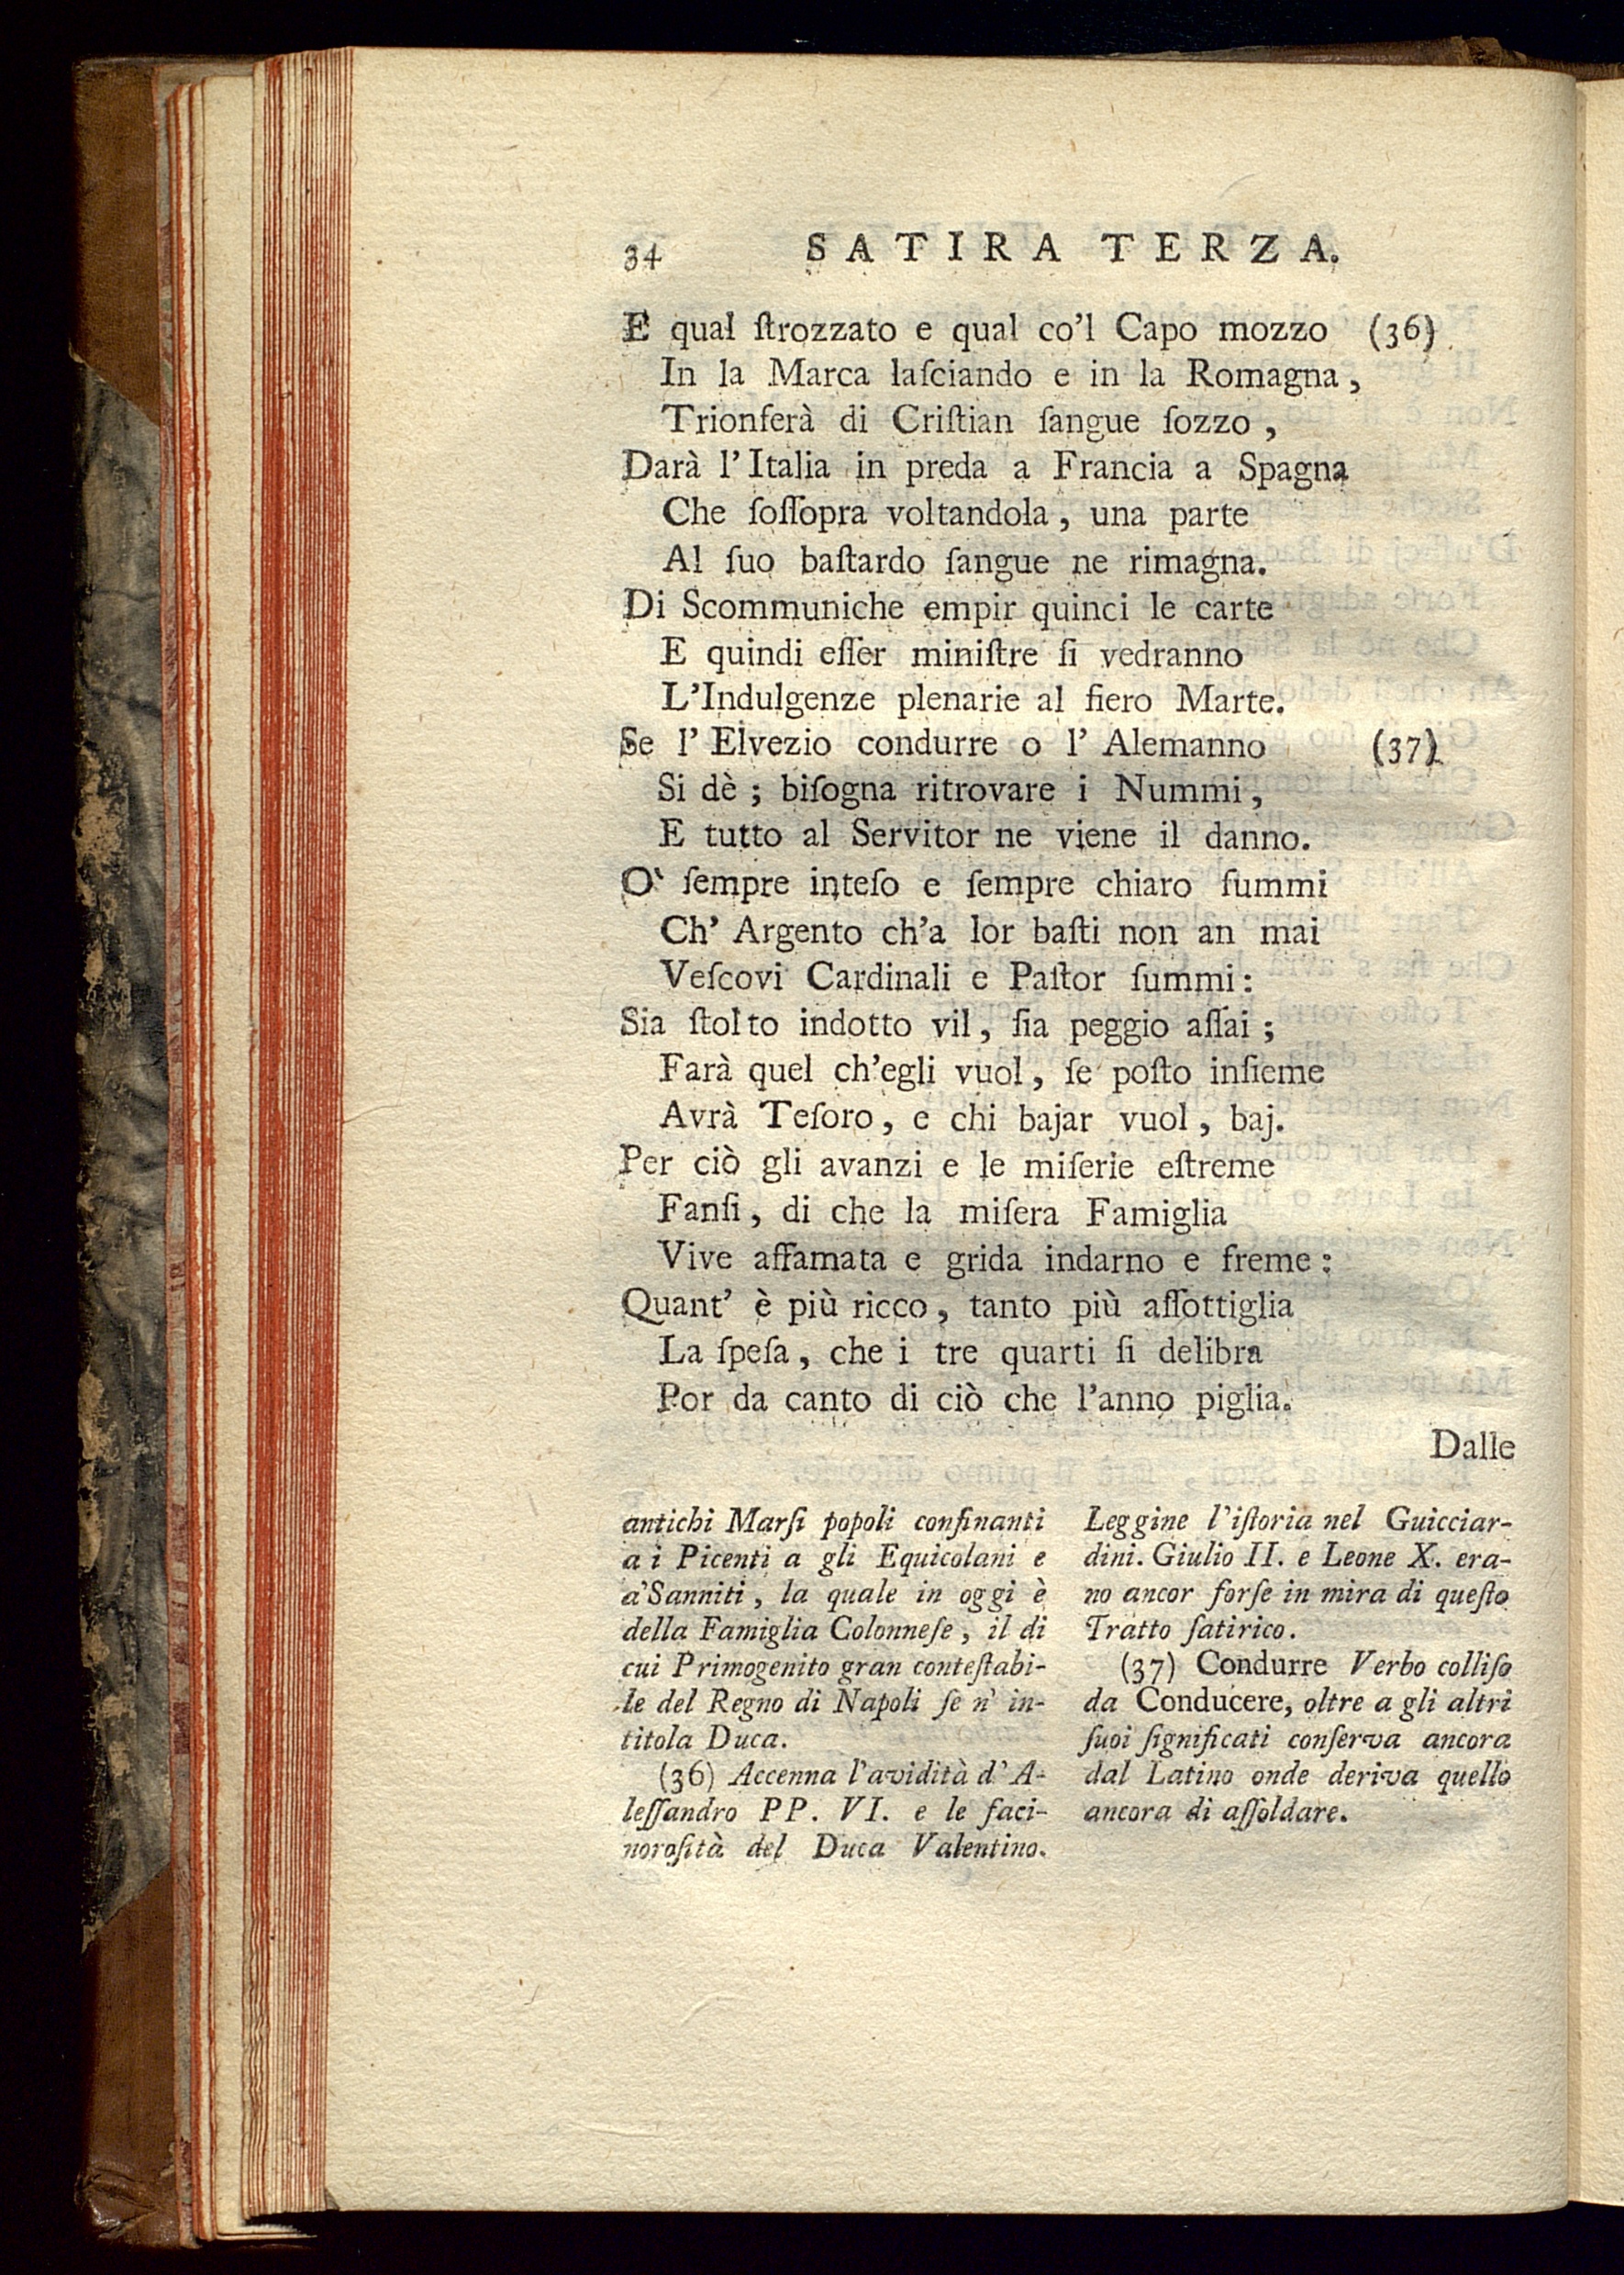 34 SATIRA TERZA.
E qual ſtrozzato e qual co'l Capo mozzo (36)
In la Marca laſciando e in la Romagna,
Trionferà di Criſtian ſangue ſozzo,
Darà l'Italia in preda a Francia a Spagna
Che ſoſſopra voltandola, una parte
Al ſuo baſtardo ſangue ne rimagna.
Di Scommuniche empir quinci le carte
E quindi eſſer miniſtre ſi vedranno
L'Indulgenze plenarie al fiero Marte.
Se l'Elvezio condurre o l'Alemanno (37)
Si dè; biſogna ritrovare i Nummi,
E tutto al Servitor ne viene il danno.
O' ſempre inteſo e ſempre chiaro fummi
Ch'Argento ch'a lor baſti non an mai
Veſcovi Cardinali e Paſtor ſummi:
Sia ſtolto indotto vil, ſia peggio aſſai;
Farà quel ch'egli vuol, ſe poſto inſieme
Avrà Teſoro, e chi bajar vuol, baj.
Per ciò gli avanzi e le miſerie eſtreme
Fanſi, di che la miſera Famiglia
Vive affamata e grida indarno e freme:
Quant'è più ricco, tanto più aſſottiglia
La ſpeſa, che i tre quarti ſi delibra
Por da canto di ciò che l'anno piglia.
Dalle
antichi Marſi popoli confinanti
a i Picenti a gli Equicolani e
a'Sanniti, la quale in oggi è
della Famiglia Colonneſe, il di
cui Primogenito gran conteſtabi-
le del Regno di Napoli ſe n'in-
titola Duca.
(36) Accenna l'avidità d'A-
leſſandro PP. VI. e le faci-
noroſità del Duca Valentino.
Leggine l'iſtoria nel Guicciar-
dini. Giulio II. e Leone X. era-
no ancor forſe in mira di queſto
Tratto ſatirico.
(37) Condurre Verbo colliſo
da Conducere, oltre a gli altri
ſuoi ſignificati conſerva ancora
dal Latino onde deriva quello
ancora di aſſoldare.